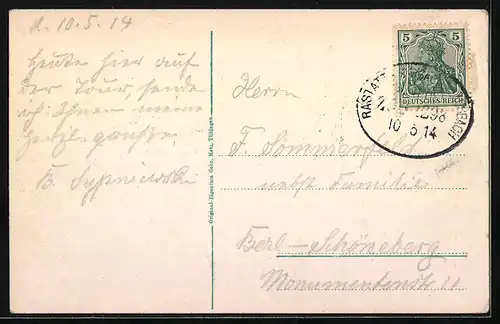 10.5.14
Heute hier auf
der Tour, sende
ich Ihnen meine
herzl. Grüße.
B. Sypniewski
Original-Eigentum Gebr. Metz, Tübingen
5 5
DEUTSCHES REICH
RASTATT
10 5 14
BACH
Herrn
F. Sommerfeld
nebst Familie
Berl-Schöneberg
Monumentenstr 11